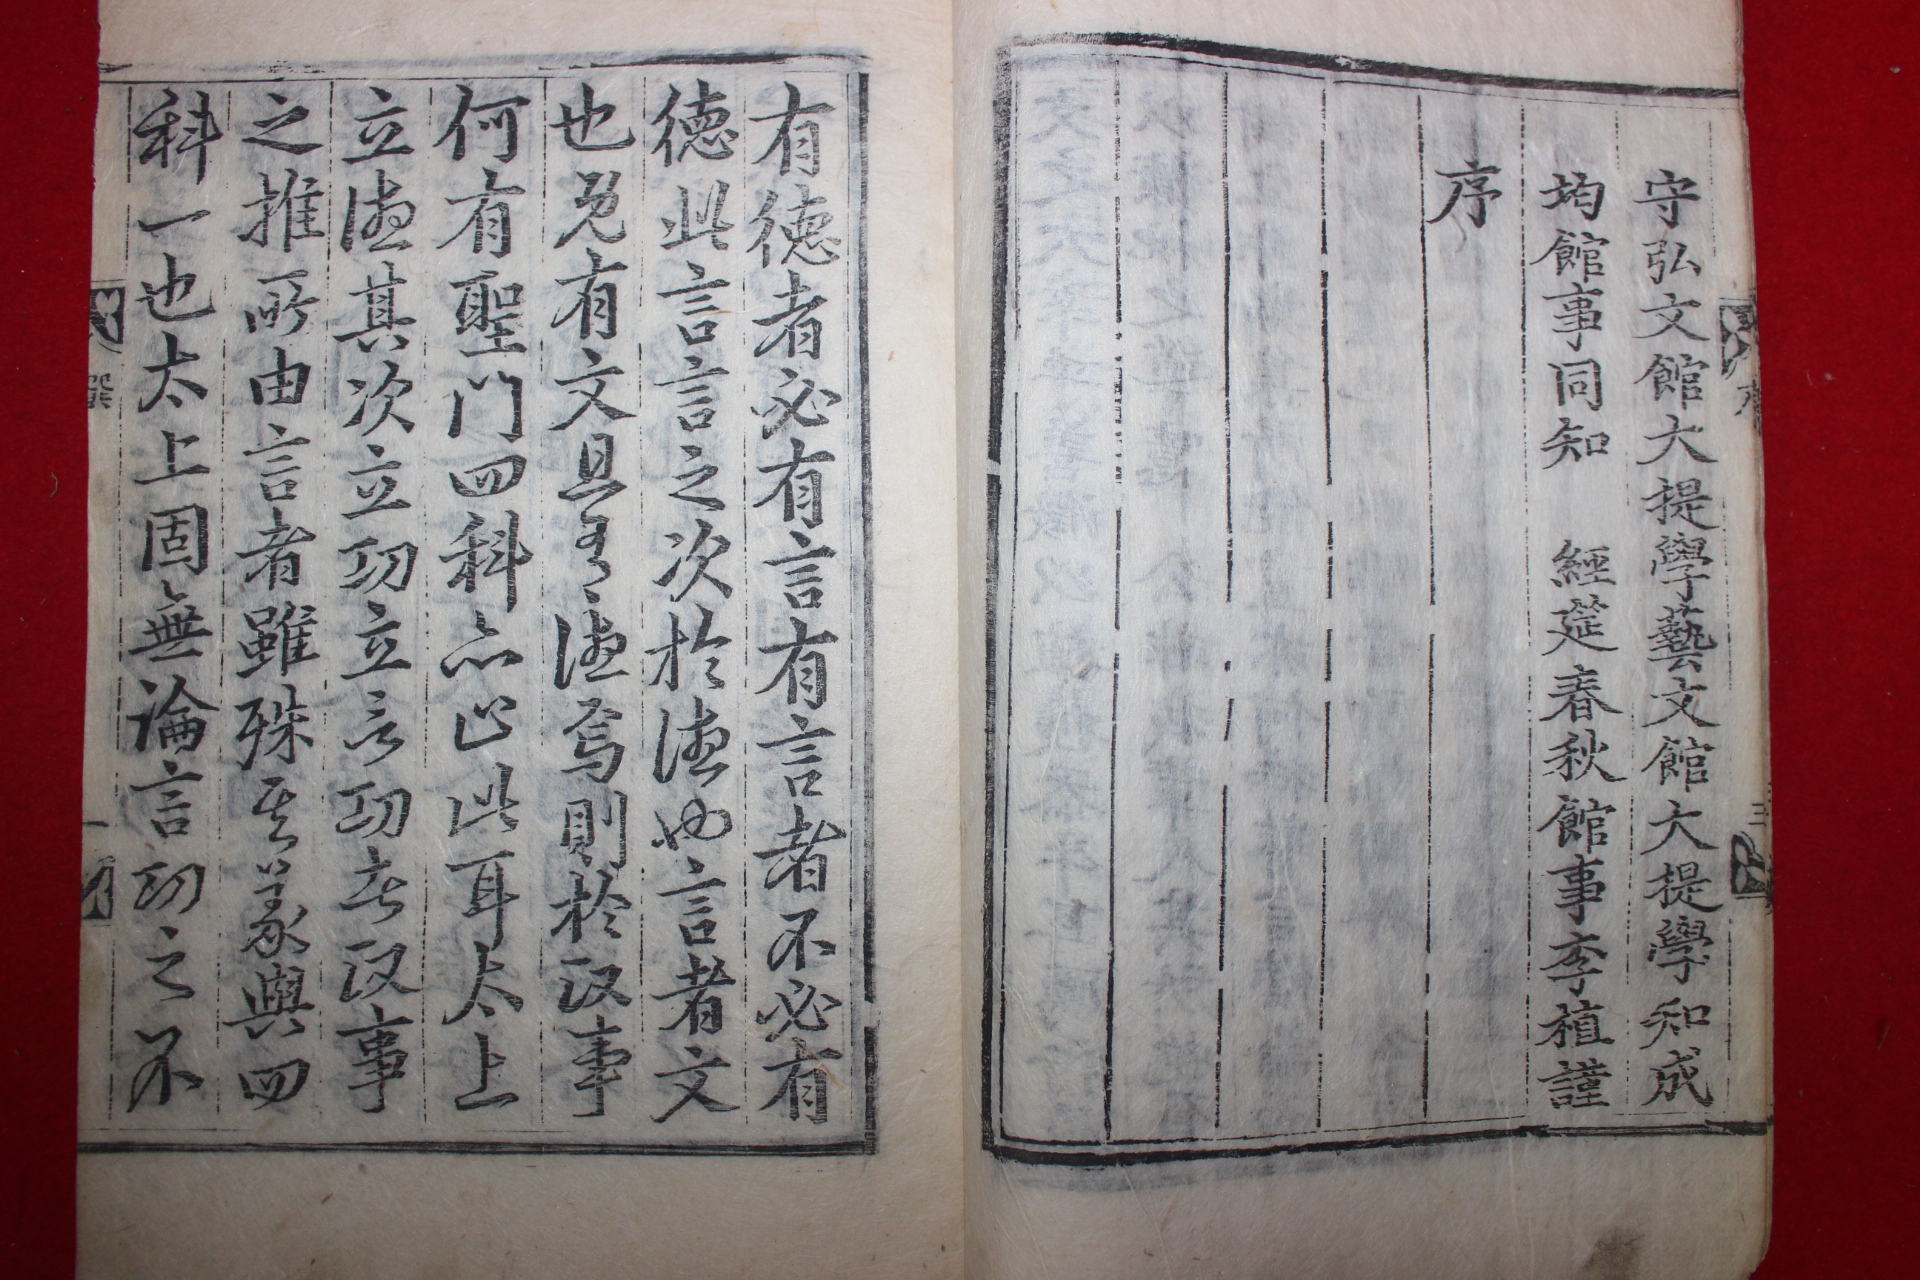 守弘文館大提學藝文館大提學知成
均館事同知 經筵春秋館事李植謹
序
有徳者必有言有言者不必有
徳此言言之次於徳也言者文
也見有文具而有徳焉則於政事
何有聖門四科亦止此耳太上
立徳其次立功立言功在政事
之推所由言者雖殊其義與四
科一也太上固無論言功之不